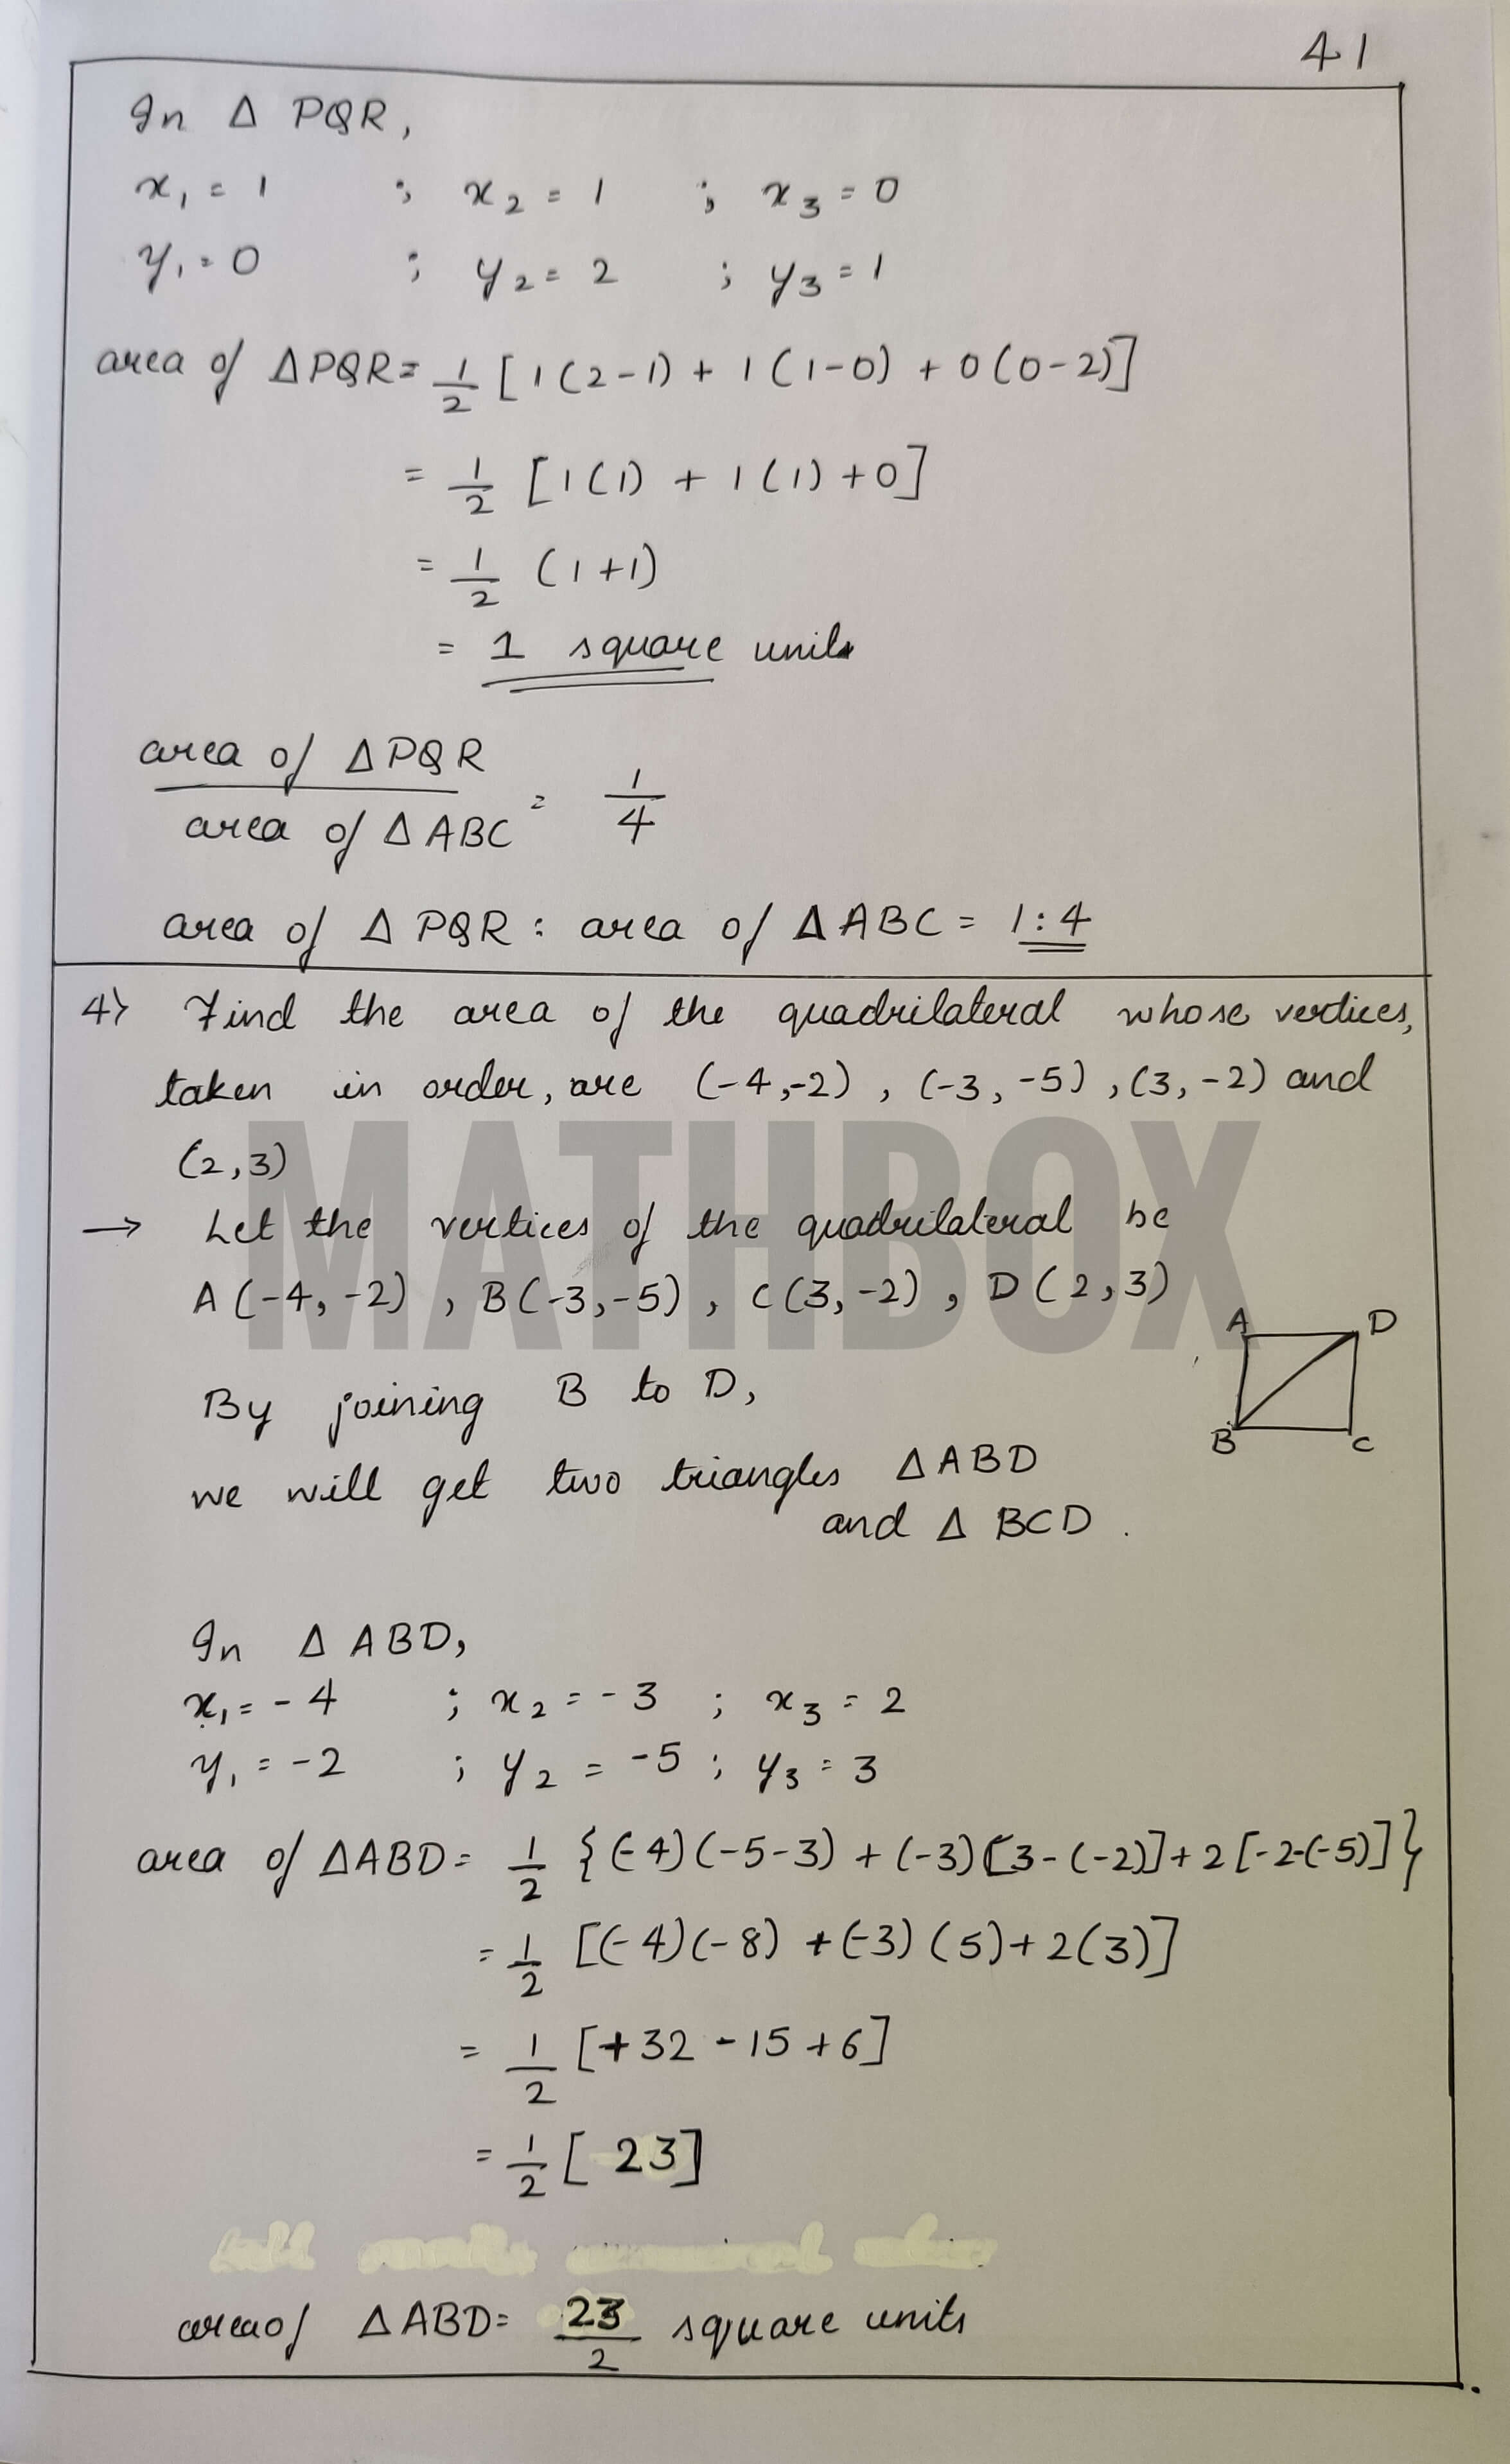 41
In Δ PQR,
x₁ = 1 ; x₂ = 1 ; x₃ = 0
y₁ = 0 ; y₂ = 2 ; y₃ = 1
area of ΔPQR = 1/2 [1(2-1) + 1(1-0) + 0(0-2)]
= 1/2 [1(1) + 1(1) + 0]
= 1/2 (1+1)
= 1 square units
area of ΔPQR / area of ΔABC = 1/4
area of Δ PQR : area of Δ ABC = 1:4
4) Find the area of the quadrilateral whose vertices,
taken in order, are (-4,-2), (-3,-5), (3,-2) and
(2,3)
→ Let the vertices of the quadrilateral be
A(-4,-2), B(-3,-5), C(3,-2), D(2,3)
MATHBOX
A D
B C
By joining B to D,
we will get two triangles ΔABD
and Δ BCD.
In Δ ABD,
x₁ = -4 ; x₂ = -3 ; x₃ = 2
y₁ = -2 ; y₂ = -5 ; y₃ = 3
area of ΔABD = 1/2 {(-4)(-5-3) + (-3)[3-(-2)] + 2[-2-(-5)]}
= 1/2 [(-4)(-8) + (-3)(5) + 2(3)]
= 1/2 [+32 - 15 + 6]
= 1/2 [23]
area of ΔABD = 23/2 square units